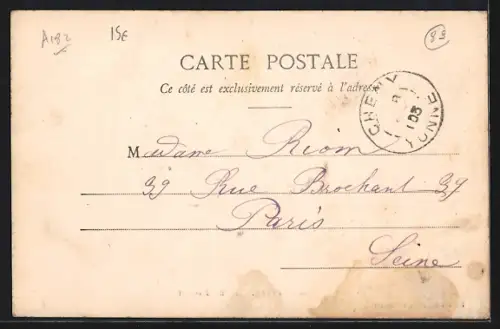 A182 15€ 83
CARTE POSTALE
Ce côté est exclusivement réservé à l'adresse
CHENY YONNE
03
Madame Riom
39 Rue Brochant 39
Paris
Seine